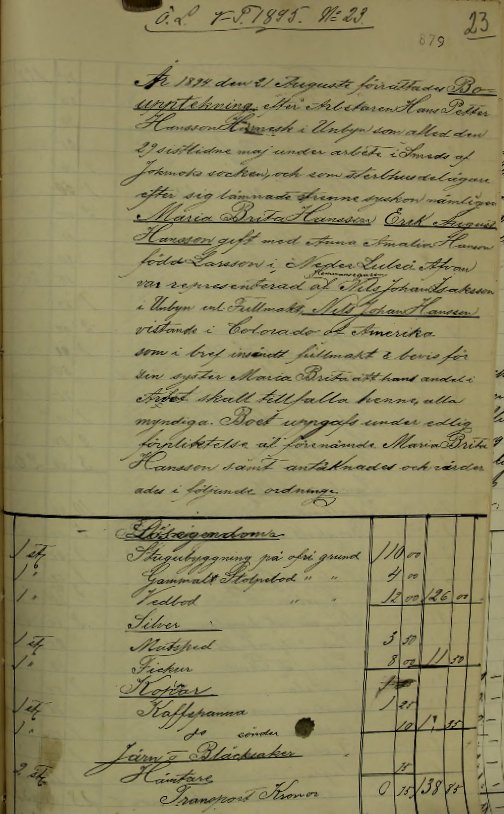 Ö. L. V-T. 1895. № 23.
23
879
År 1894 den 21 Augusti förrättades Bo-
uppteckning efter Arbetaren Hans Petter
Hansson i Unbyn som afled den
29 sistlidne maj under arbete i Smeds af
Jokmoks socken, och som sterbhusdelägare
efter sig lämnade trenne syskon nämligen
Maria Brita Hansson Erik August
Hansson gift med Anna Amalia Hanson
född Larsson i Neder Luleå, Afvan
Hemmansegaren
var representerad af Nils Johan Isaksson
i Unbyn enl Fullmakt, Nils Johan Hansson
vistande i Colorado of Amerika
som i bref insändt fullmakt & bevis för
sin syster Maria Brita att hans andel i
Arfvet skall tillfalla henne, alla
myndiga. Boet uppgafs under edlig
förpliktelse af förenämde Maria Brita
Hansson samt antäknades och värder
ades i följande ordning
Lösegendom
1 st Stugubyggning på ofri grund 110 00
1 " Gammalt Stolpebod " " 4 00
1 " Vedbod " " 12 00 126 00
Silver
1 st Matsked 3 50
1 " Fickur 8 00 11 50
Koppar
1 st Kaffepanna 1 25
1 " do sönder 10 1 35
Järn o Bläcksaker
2 st Hämtare 15
Transport Kronor 0 15 138 85